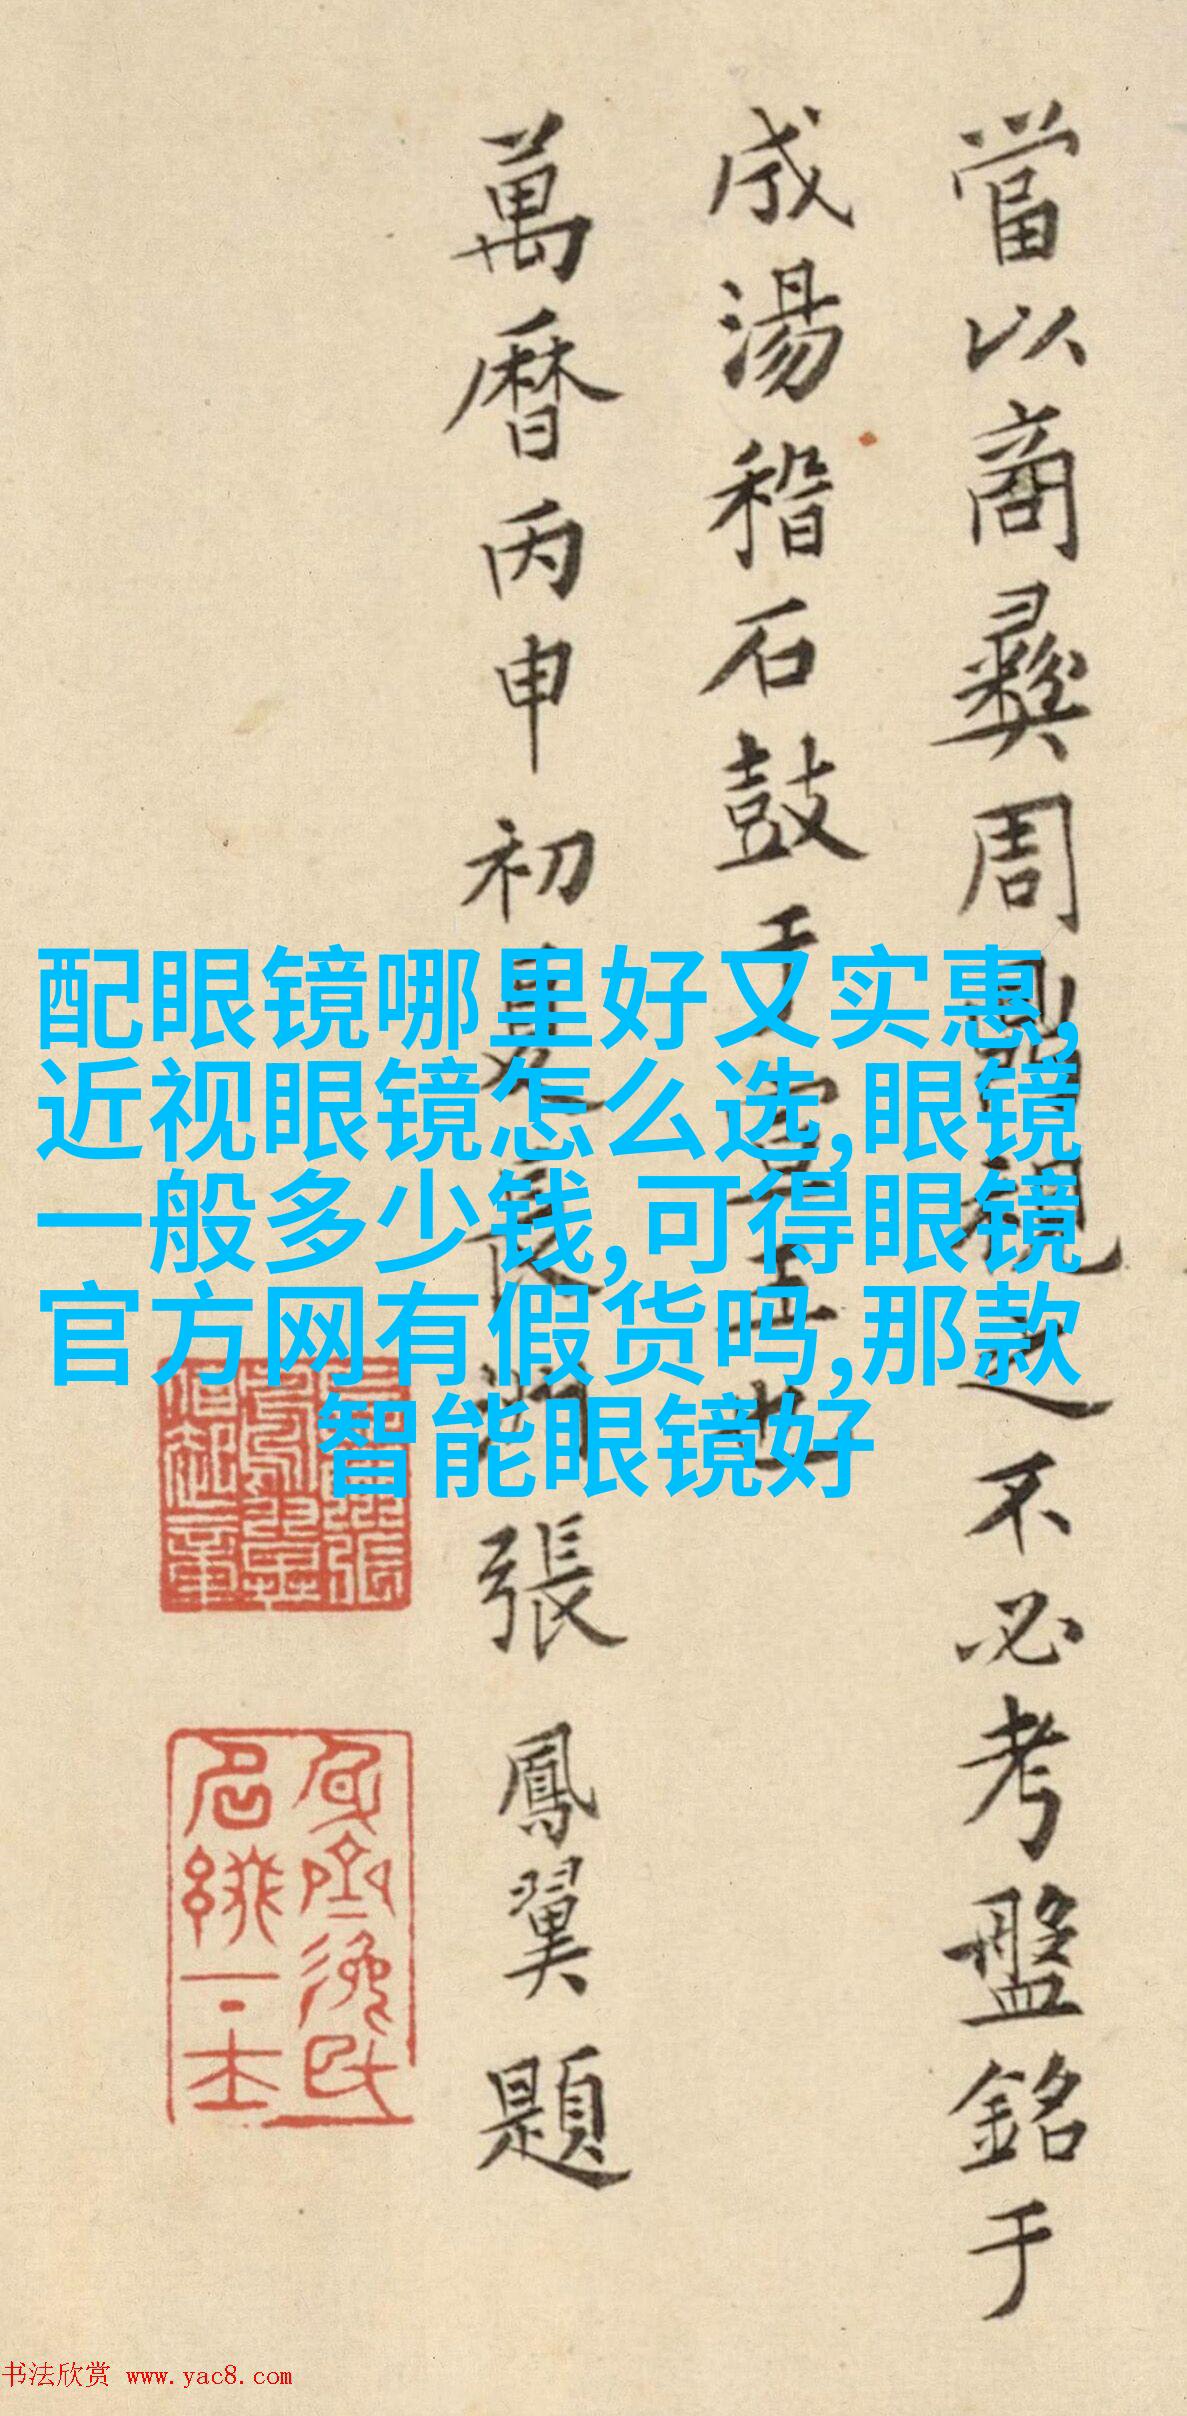 當以商彝周鼎視之不必考盤銘于
成湯稽石鼓于宣王也
萬曆丙申初夏長洲張鳳翼題
配眼镜哪里好又实惠,
近视眼镜怎么选,眼镜
一般多少钱,可得眼镜
官方网有假货吗,那款
智能眼镜好
书法欣赏 www.yac8.com